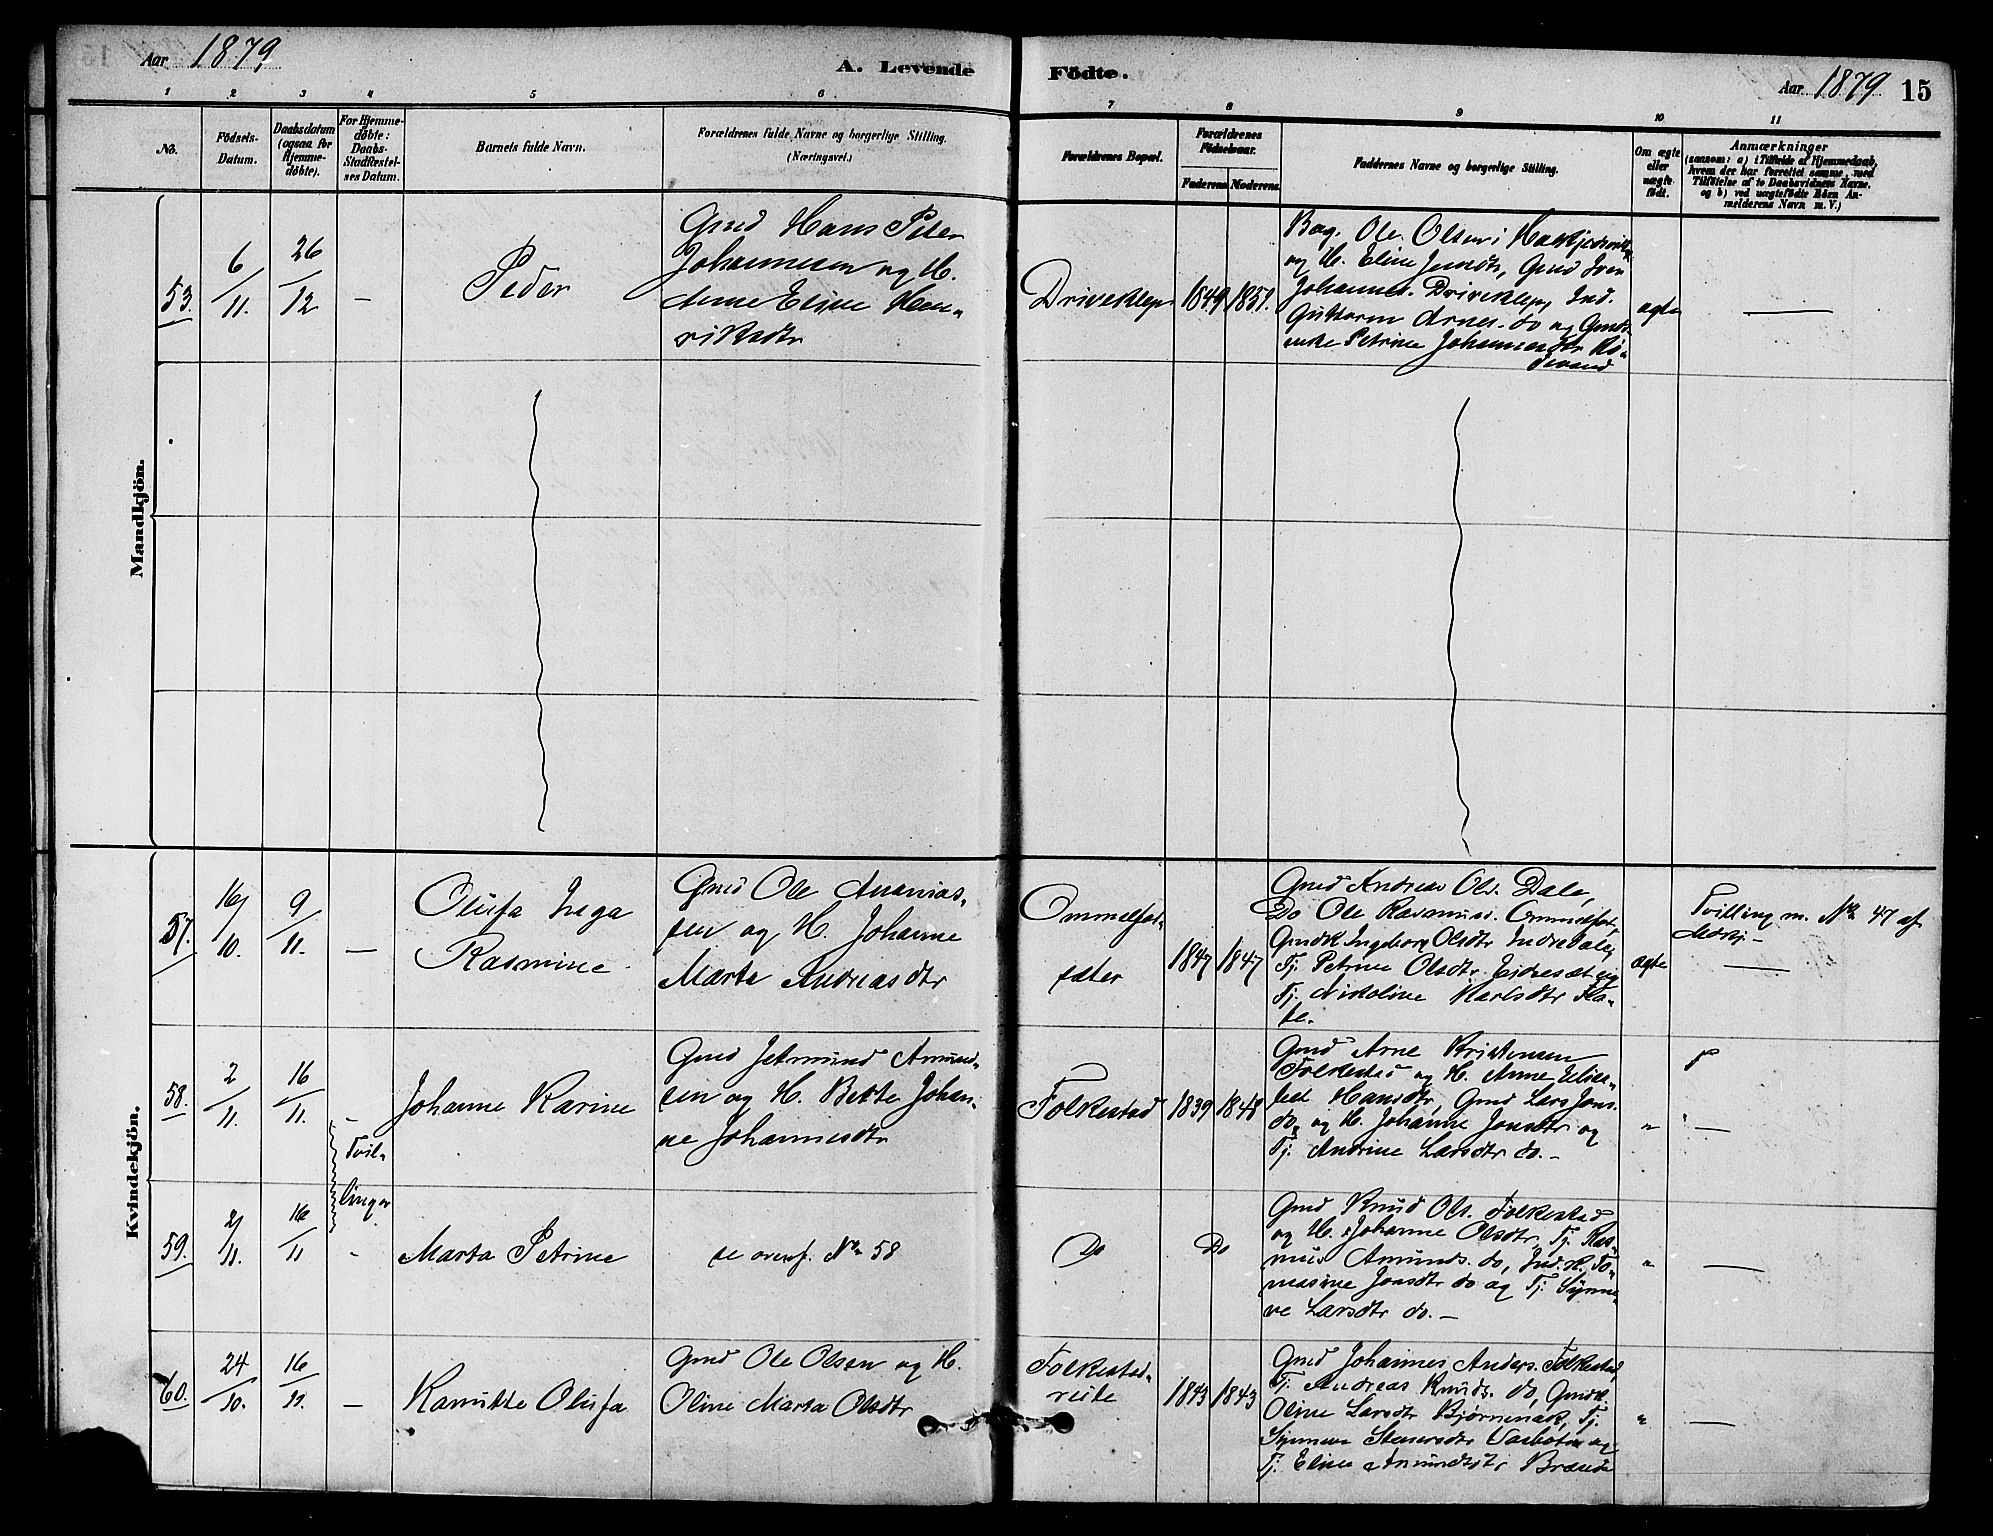 Aar 1879
A. Levende Födte.
Aar 1879 15
1 2 3 4 5 6 7 8 9 10 11
No.
Födsels-
Datum.
Daabsdatum
(ogsaa for
Hjemme-
døbte).
For Hjemme-
døbte:
Daabs-
Stadfæstel-
ses Datum.
Barnets fulde Navn.
Forældrenes fulde Navne og borgerlige Stilling.
(Næringsvei.)
Forældrenes Bopæl.
Forældrenes
Födselsaar.
Faderens Moderens
Faddernes Navne og borgerlige Stilling.
Om ægte
eller
uægte
födt.
Anmærkninger
(saasom: a) i Tilfælde af Hjemmedaab,
hvem der har forrettet samme, med
Tilföielse af to Daabsvidners Navne,
og b) ved uægtefödte Börn An-
melderens Navn m. V.)
Mandkjön.
53.
6/11.
26/12
—
Peder
Gmd Hans Peter
Johannesen og H.
Anne Eline Hen-
riksdtr
Driveklep
1849
1851.
Bag. Ole Olsen i
og H. Eline Jensdtr, Gmd Iver
Johannes. Driveklep, Ind.
Guttorm Arnes. do og Gmds-
enke Petrine Johannesdtr Rö-
devand
ægte
—
Kvindekjön.
57.
16/10.
9/11.
—
Olufa Inga
Rasmine
Gmd Ole Ananias-
sen og H. Johanne
Marta Andreasdtr
Ommelfot-
sæter
1847
1847
Gmd Andreas Ols. Dale,
Do Ole Rasmus. Ommelfot,
Gmdk Ingeborg Olsdtr Indredale,
Tj. Petrine Olsdtr Eidesæt og
Tj. Nikoline Karlsdtr Flo-
te.
ægte
Tvilling m. No 47 af
Mdkj.—
—
58.
2/11.
16/11.
-
Tvil-
linger
Johanne Karine
Gmd Jetmund Amund-
sen og H. Bette Johan-
ne Johannesdtr
Folkestad
1839
1848
Gmd Arne Kristensen
Folkestad og H. Anne Elisa-
bet Hansdtr, Gmd Lars Jons.
do, og H. Johanne Jonsdtr og
Tj. Andrine Larsdtr do. —
"
—
59.
2/11.
16/11
-
Marta Petrine
se ovenf. No 58
Do
Do
Gmd Knud Ols. Folkestad
og H. Johanne Olsdtr, Tj. Ras-
mus Amunds. do, Ind. K. To-
masine Jonsdtr do og Tj. Synne-
ve Larsdtr do. —
"
—
60.
24/10.
16/11.
—
Kanutte Olufa
Gmd Ole Olsen og H.
Oline Marta Olsdtr
Folkestad-
reite
1843
1843
Gmd Johannes Anders. Folkestad,
Tj. Andreas Knuds. do, Gmdk.
Oline Larsdtr Bjørnenak, Tj.
Synneve Steffensdtr og
Tj. Eline Amundsdtr
"
—